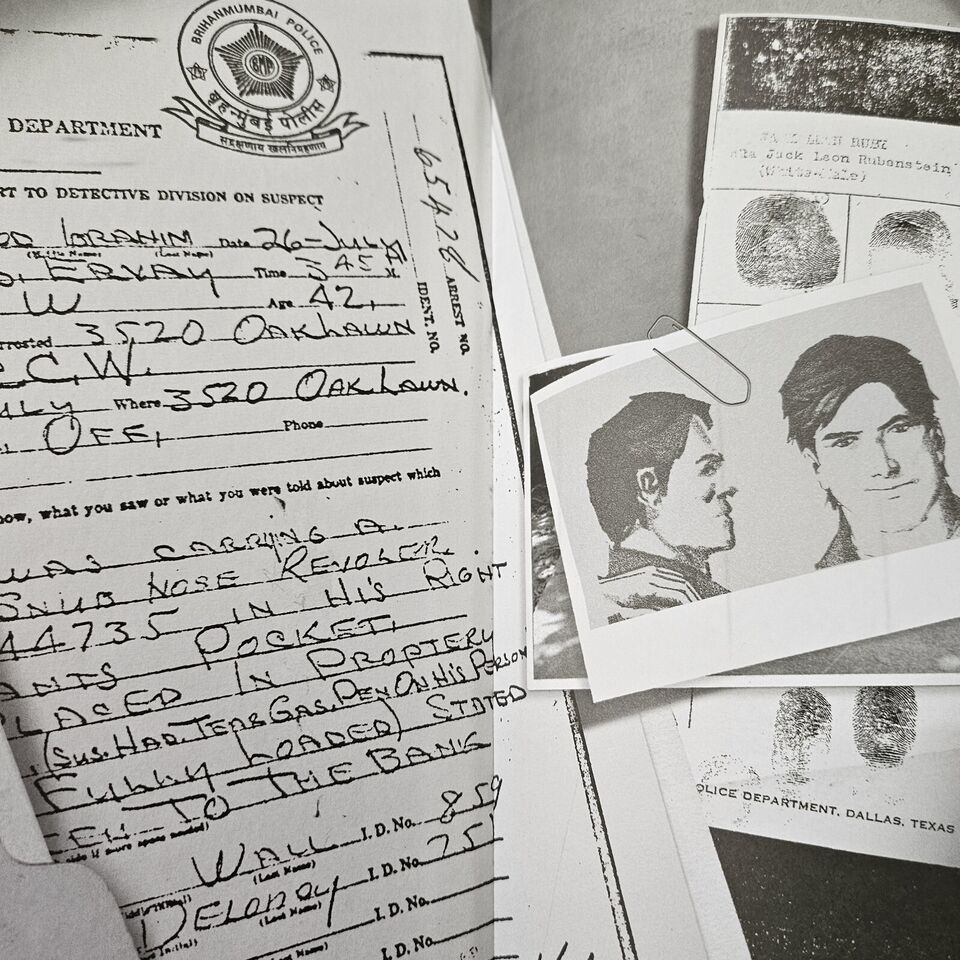 BRIHANMUMBAI POLICE
BMP
बृहन्मुंबई पोलीस
सद्रक्षणाय खलनिग्रहणाय
DEPARTMENT
RT TO DETECTIVE DIVISION ON SUSPECT
65428
ARREST NO.
IDENT. NO.
IBRAHIM Date 26-JULY
(Middle Name) (Last Name)
ERVAY Time 345 M.
W Age 42,
rrested 3520 OAKLAWN
C.W.
ULY Where 3520 OAK LAWN.
OFF, Phone
now, what you saw or what you were told about suspect which
WAS CARRING A
SNUB NOSE REVOLER.
44735 IN HIS RIGHT
ANTS POCKET,
PLACED IN PROPTERY
(SUS. HAD. TEAR GAS. PEN ON HIS PERSON
FULLY LOADED) STATED
EEN TO THE BANK
side if more space needed)
WALL I. D. No. 859
(Last Name)
DELONEY I. D. No. 75
(Last Name)
I. D. No.
(Last Name)
I. D. No.
JACK LEON RUBY
aka Jack Leon Rubenstein
(White-Male)
OLICE DEPARTMENT, DALLAS, TEXAS